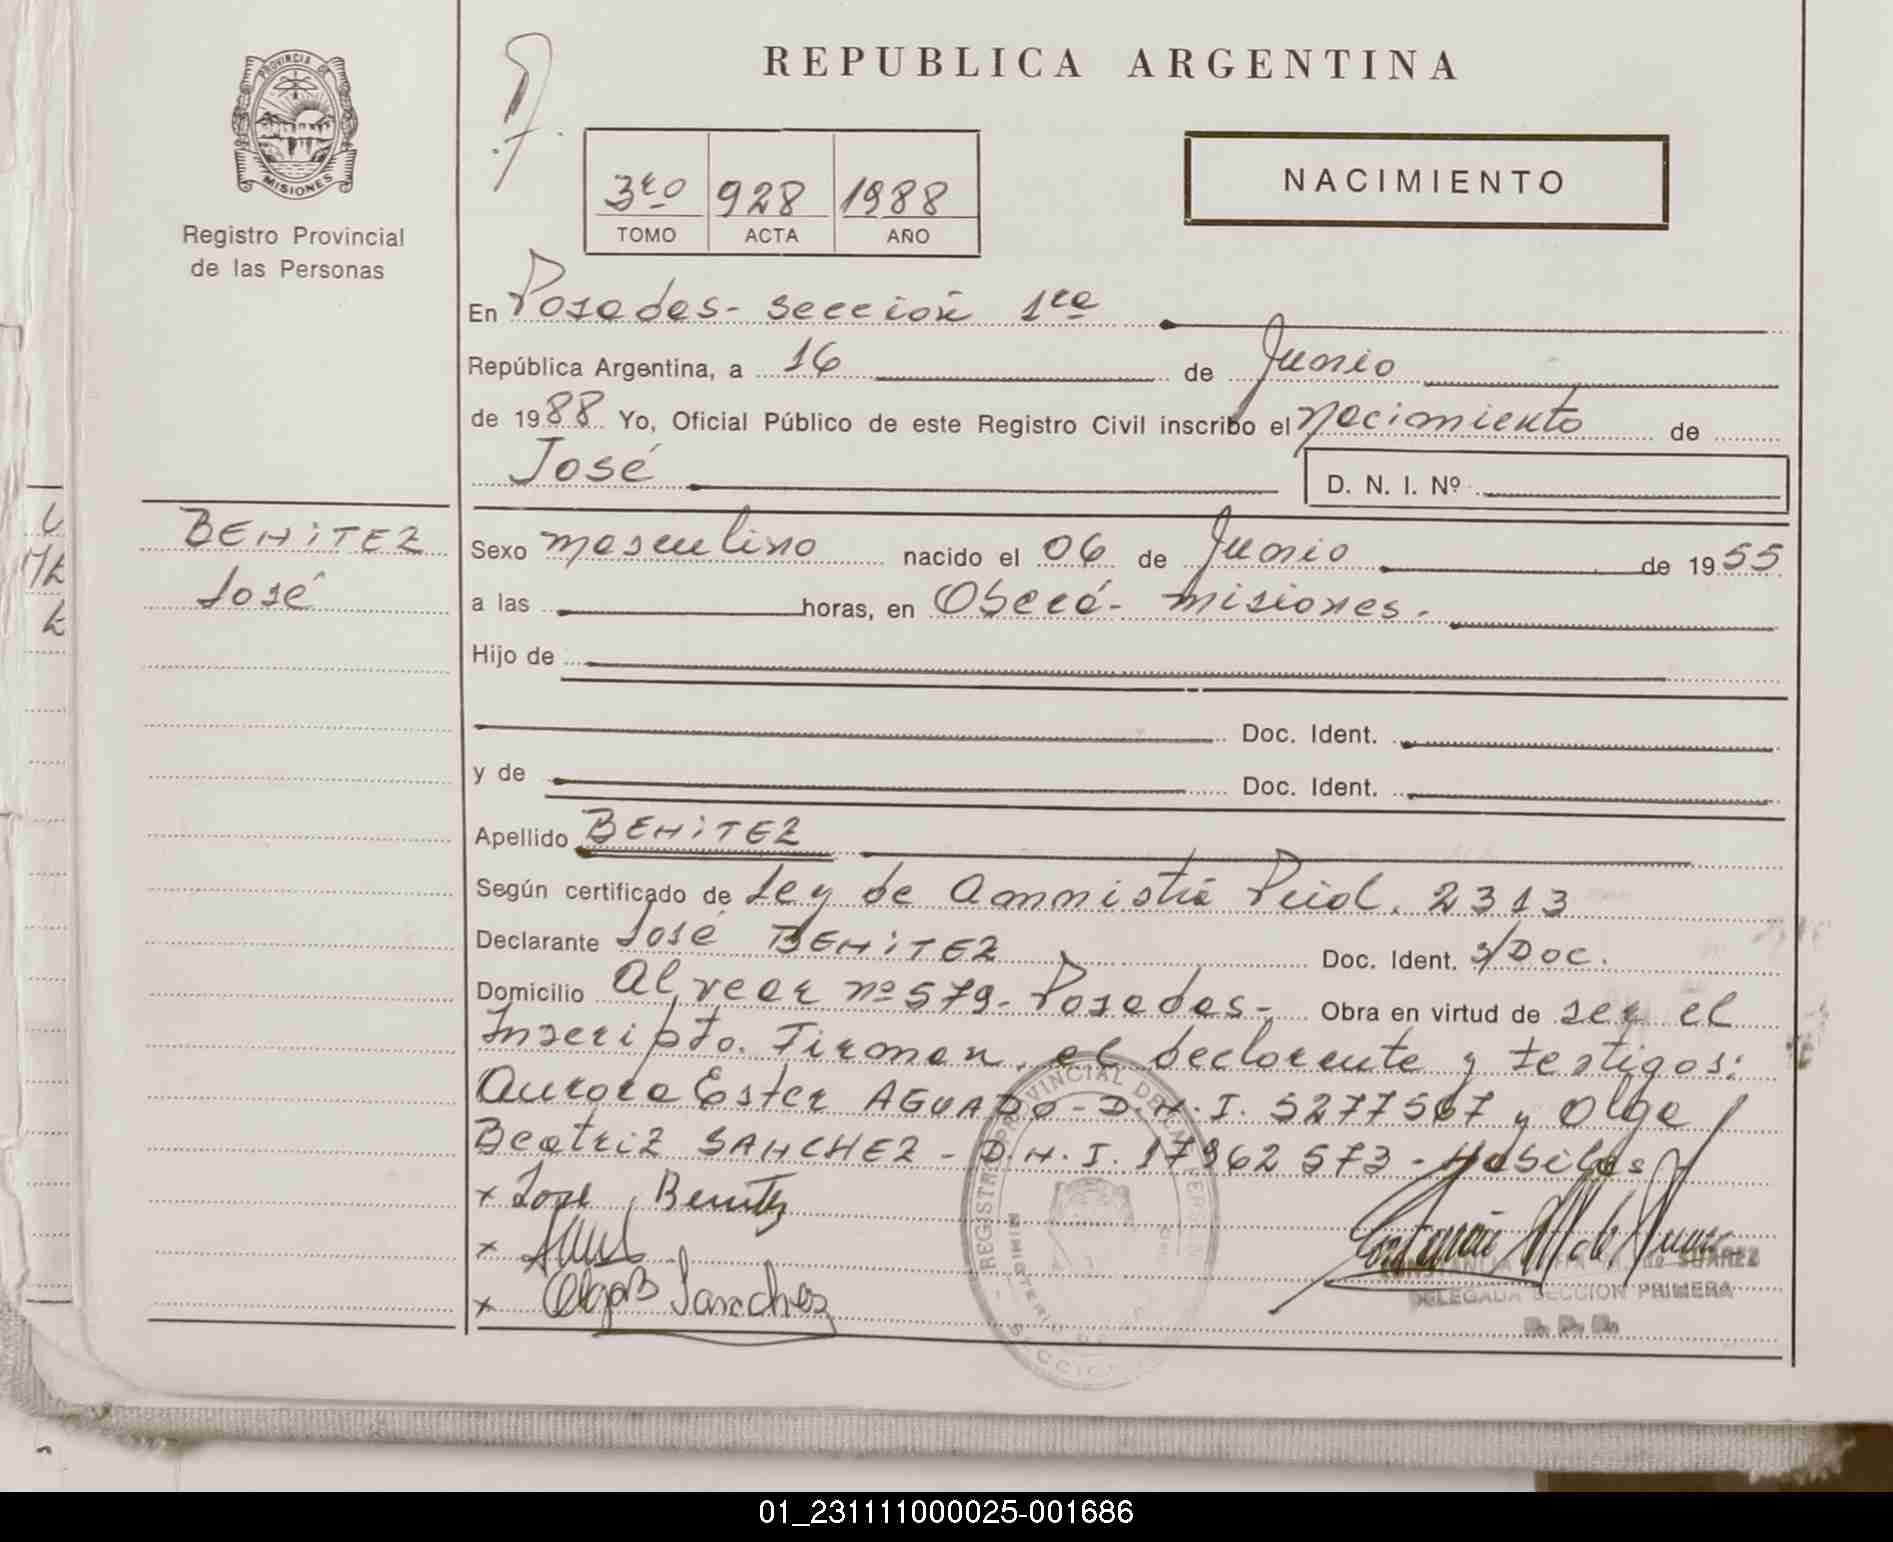 REPUBLICA ARGENTINA
PROVINCIA DE
MISIONES
Registro Provincial
de las Personas
3ro 928 1988
TOMO ACTA AÑO
NACIMIENTO
En Posadas - Sección 1ra
República Argentina, a 16 de Junio
de 1988 Yo, Oficial Público de este Registro Civil inscribo el nacimiento de
José D. N. I. Nº
BENITEZ
José
Sexo masculino nacido el 06 de Junio de 1955
a las horas, en Oberá - Misiones -
Hijo de
Doc. Ident.
y de Doc. Ident.
Apellido BENITEZ
Según certificado de Ley de Amnistía 2313
Declarante José BENITEZ Doc. Ident. s/Doc.
Domicilio Alvear nº 579 - Posadas - Obra en virtud de ser el
Inscripto. Firman, el declarante y testigos:
Aurora Ester AGUADO - D.N.I. 5277567 y Olga
Beatriz SANCHEZ - D.N.I. 17962573 - Hábiles
x Jose Benitez
x
x Olga B Sanchez
SUAREZ
DELEGADA SECCION PRIMERA
01_231111000025-001686